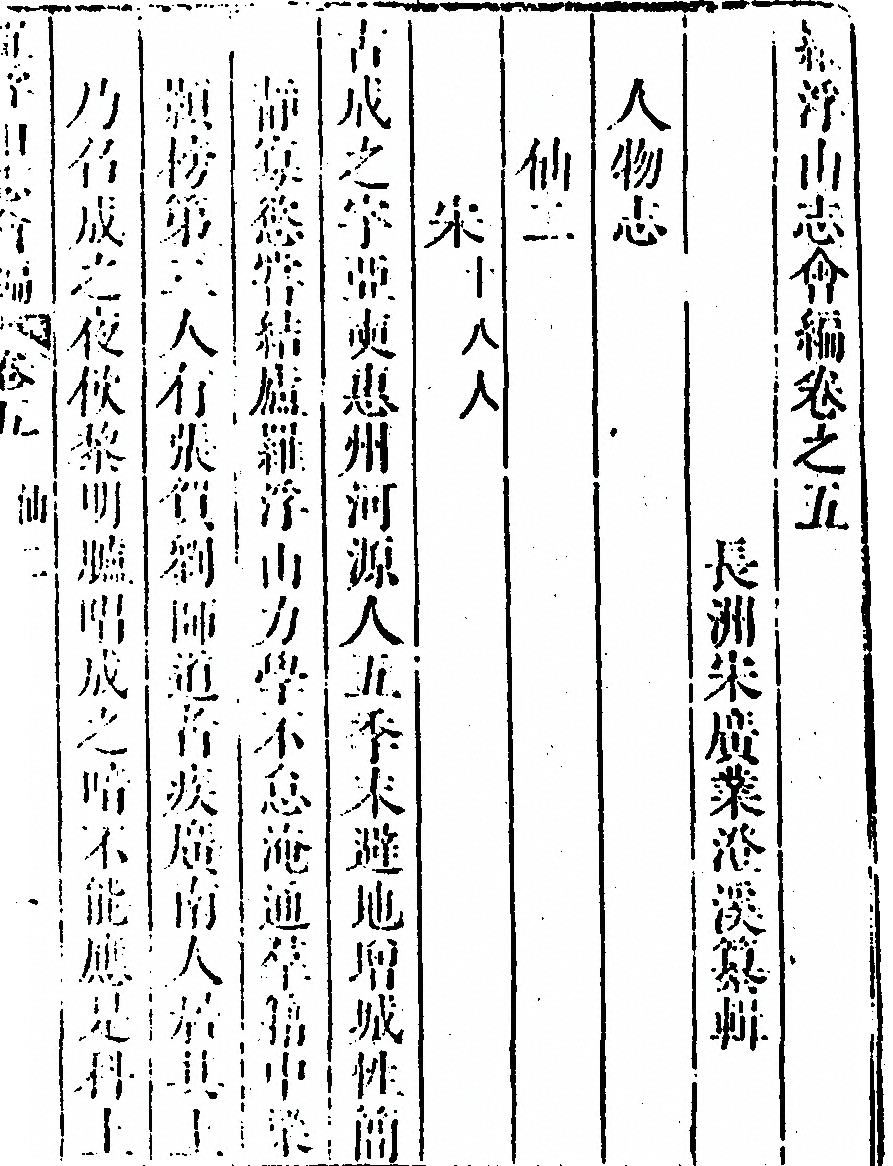 羅浮山志會編卷之五
長洲朱廣業澄溪纂輯
人物志
仙二
宋十八人
古成之字亞奭惠州河源人五季末避地增城性簡
靜寡慾嘗結廬羅浮山力學不怠淹通羣籍中梁
顥榜第二人有張賀劉師道者疾廣南人居其上
乃召成之夜飲黎明臚唱成之喑不能應是科上
羅浮山志會編 卷五 仙二